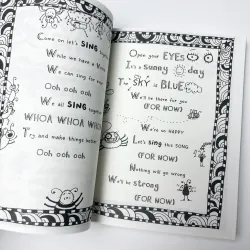 Come on let's SING
While we have a
We can sing for
Ooh ooh ooh
We all SING
WHOA WHOA
Try and make things better
Ooh ooh ooh
Open your EYES
It's a sunny day
The SKY is BLUE
We'll be there for you
(FOR NOW)
We're so HAPPY
Let's sing this SONG
(FOR NOW)
Nothing will go wrong
We'll be strong
(FOR NOW)